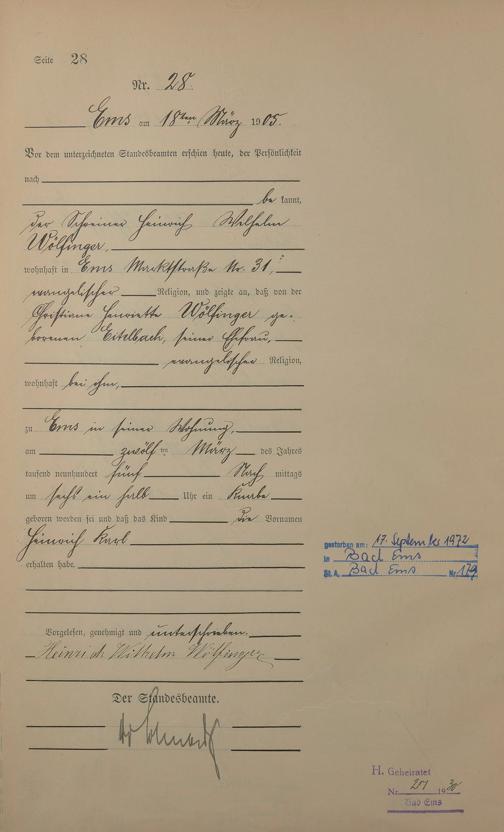 Seite 28
Nr. 28.
Ems am 18ten März 1905.
Vor dem unterzeichneten Standesbeamten erschien heute, der Persönlichkeit
nach
be kannt,
der Schreiner Heinrich Wilhelm
Wölfinger,
wohnhaft in Ems Marktstraße Nr. 31,
evangelischer Religion, und zeigte an, daß von der
Christiane Henriette Wölfinger ge-
borenen Eitelbach, seiner Ehefrau,
evangelischer Religion,
wohnhaft bei ihm,
zu Ems in seiner Wohnung,
am zwölf ten März des Jahres
tausend neunhundert fünf Nach mittags
um sechs ein halb Uhr ein Knabe
geboren worden sei und daß das Kind die Vornamen
Heinrich Karl
erhalten habe.
gestorben am: 17. September 1972
in Bad Ems
St. A. Bad Ems Nr. 179
Vorgelesen, genehmigt und unterschrieben.
Heinrich Wilhelm Wölfinger
Der Standesbeamte.
H. Geheiratet
Nr. 1930
Bad Ems